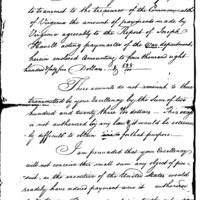 to transmit to the treasurer of the Commonwealth
of Virginia the amount of payments made by
Virginia agreeably to the Report of Joseph
Howell acting paymaster of the War department,
herein enclosed amounting to four thousand eight
hundred fifty four Dollars &
This amounts do not amount to those
transmitted by your Excellency by the sum of two
hundred and twenty three Dollars — This
is not authorized by any law & it would be extreme
ly difficult to obtain further purpose.
I am persuaded that your Excellency
will not conceive this small sum any object of
as the executive of the United States would
readily have ordered payment were it authorized